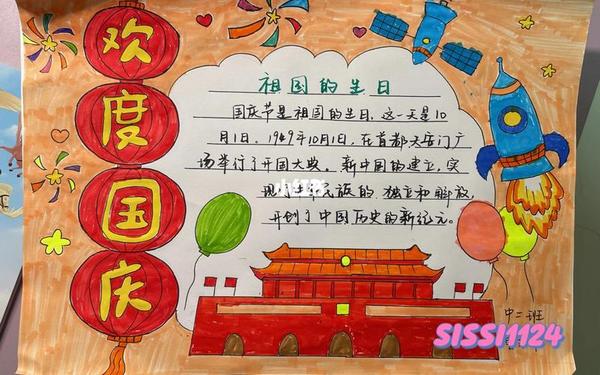 欢度国庆
祖国的生日
国庆节是祖国的生日，这一天是10
月1日，1949年10月1日，在首都天安门广
场举行了开国大典。新中国的建立，实
现了 民族的独立和解放，
开创了中国历史的新纪元。
中二班
SISSI1124